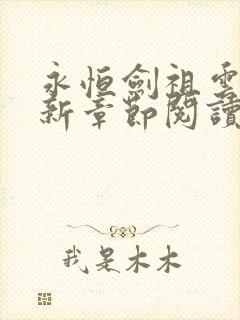 永恒劍祖雲
新章節閱讀
我是木木